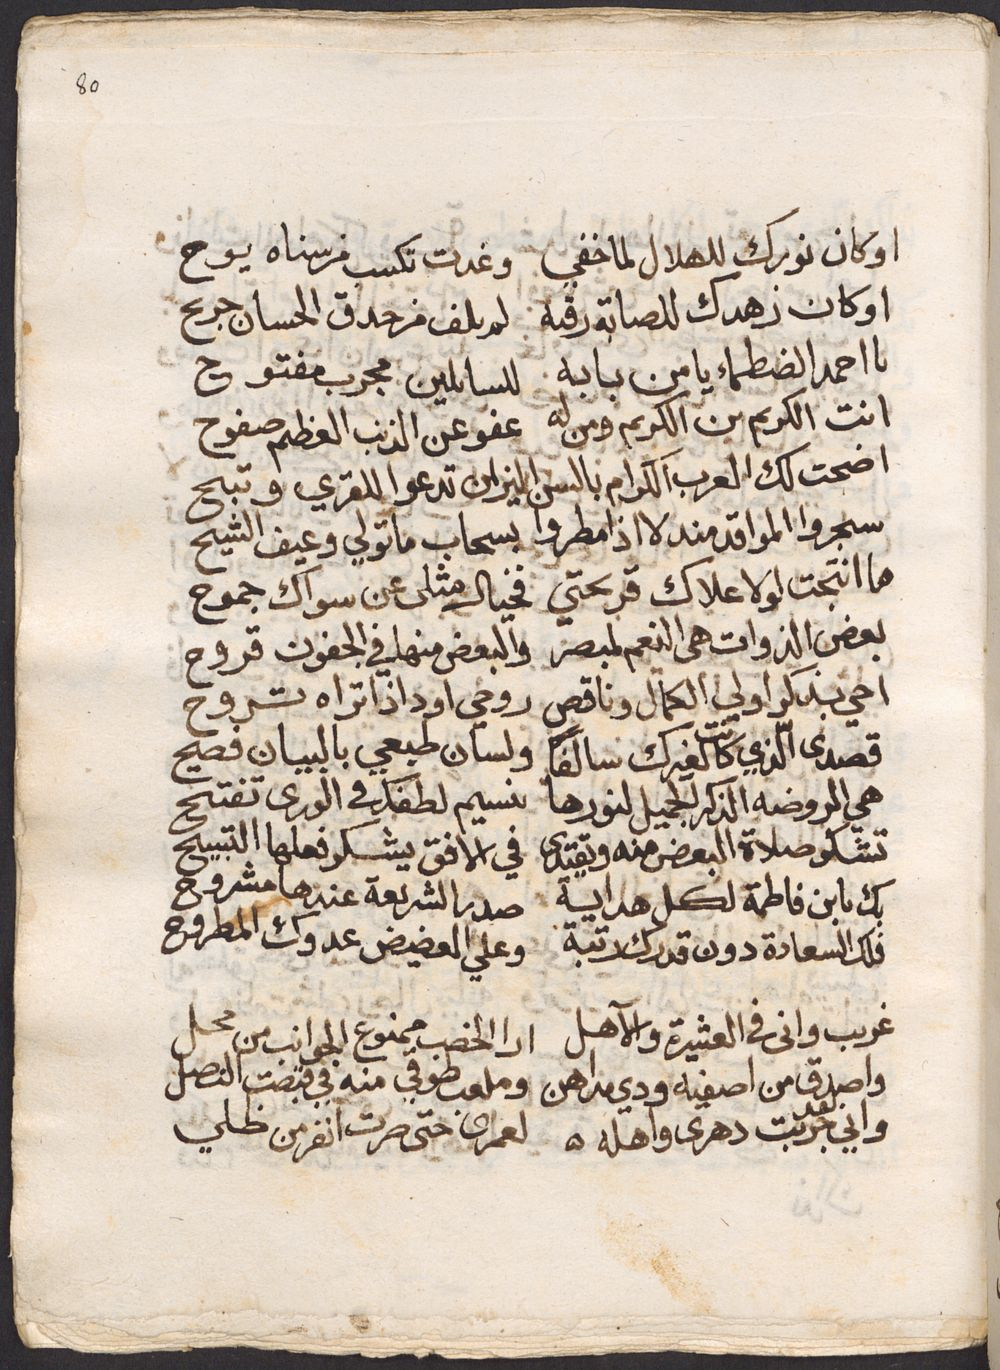 80
اوكان نورك للهلال لما خفي وغدت تكسب من سناه يوح
اوكان زهدك للصبابة رقة لم يلف من حدق الحسان جريح
يا احمد الضطماء يا من ببابه للسايلين مجرب مفتوح
انت الكريم بن الكريم ومن له عفو عن الذنب العظيم صفوح
اضحت لك العرب الكرام بالسن النيران تدعوا للقري وتبيح
سجروا المواقد مندلا اذا مطروا بسحاب ما تولي وعيف الشيح
ما انتجت لولا علاك قريحتي فخيال مثلي عن سواك جموح
بعض الذوات هي النعم لمبصر والبعض منها في الجفون قروح
احي بذكر اولي الكمال وناقص روحي اود اذا تراه تروح
قصدي الذي كانت لغيرك سالفا ولسان طبعي بالبيان فصيح
هي الروضه الذكر الجميل لنورها بنسيم لطفك في الورى تفتيح
تشكو صلاة البعض منه ويقتدى في الافق يشكر فعلها التبيح
بك يابن فاطمة لكل هداية صدر الشريعة عندها مشروح
فلك السعادة دون قدرك رتبة وعلي الحضيض عدوك المطروح
غريب واني في العشيرة والآهل ارا الخصب ممنوع الجوانب من محل
واصدق من اصفيه ودي مداهن وملعب طوفي منه في قبضت النصل
واني لقد جربت دهري واهله ه لعمري حتى صرت انفر من ظلي